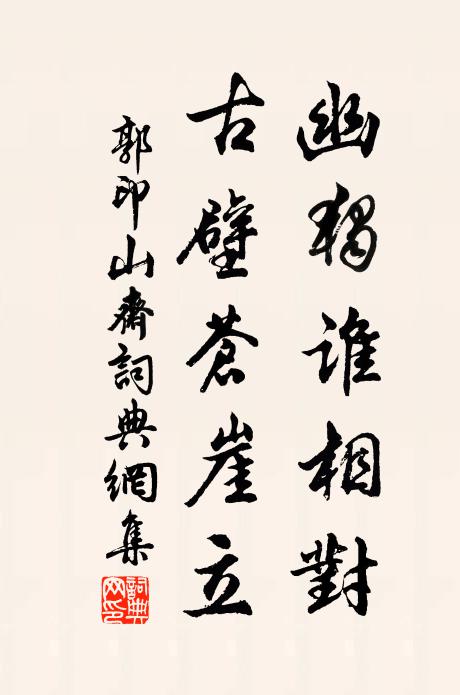 幽獨誰相對
古壁蒼崖立
郭印山齋詞典網集
詞典網印